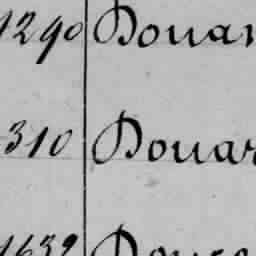 1290 Douar
310 Douar
1639 Douce